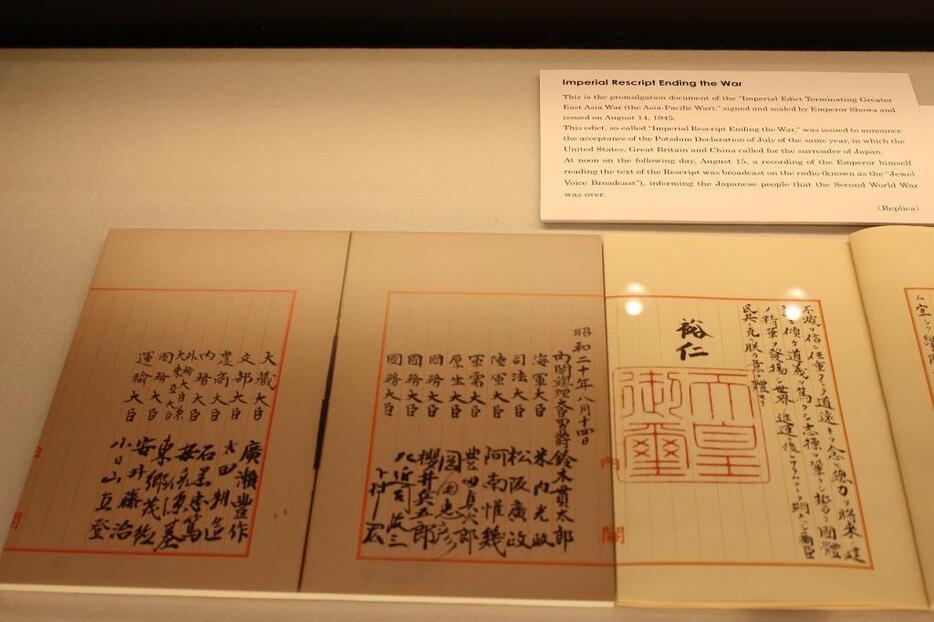 Imperial Rescript Ending the War
This is the promulgation document of the "Imperial Edict Terminating Greater
East Asia War (the Asia-Pacific War)," signed and sealed by Emperor Showa and
issued on August 14, 1945.
This edict, so-called "Imperial Rescript Ending the War," was issued to announce
the acceptance of the Potsdam Declaration of July of the same year, in which the
United States, Great Britain and China called for the surrender of Japan.
At noon on the following day, August 15, a recording of the Emperor himself
reading the text of the Rescript was broadcast on the radio (known as the "Jewel
Voice Broadcast"), informing the Japanese people that the Second World War
was over.
(Replica)
不滅ヲ信シ任重クシテ道遠キヲ念ヒ總力ヲ將來ノ建
傾ケ道義ヲ篤クシ志操ヲ鞏クシ誓テ國體
ノ精華ヲ發揚シ世界ノ進運ニ後レサラムコトヲ期スヘシ爾臣
民其レ克ク朕カ意ヲ體セヨ
裕仁
天皇
御璽
内閣
昭和二十年八月十四日
内閣總理大臣男爵 鈴木貫太郎
海軍大臣 米内光政
司法大臣 松阪廣政
陸軍大臣 阿南惟幾
軍需大臣 豐田貞次郎
厚生大臣 岡田忠彦
國務大臣 櫻井兵五郎
國務大臣 左近司政三
國務大臣 下村宏
大藏大臣 廣瀬豐作
文部大臣 太田耕造
農商大臣 石黒忠篤
内務大臣 安倍源基
外務大臣兼大東亞大臣 東郷茂徳
國務大臣 安井藤治
運輸大臣 小日山直登